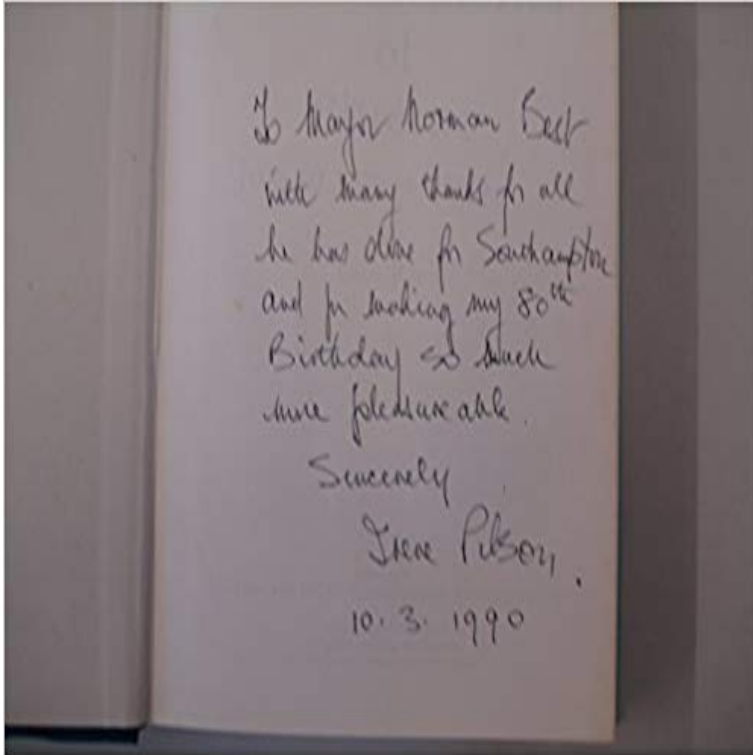 To Mayor Norman Best
with many thanks for all
he has done for Southampton
and for making my 80th
Birthday so much
more pleasureable.
Sincerely
Irene Pilson.
10.3.1990